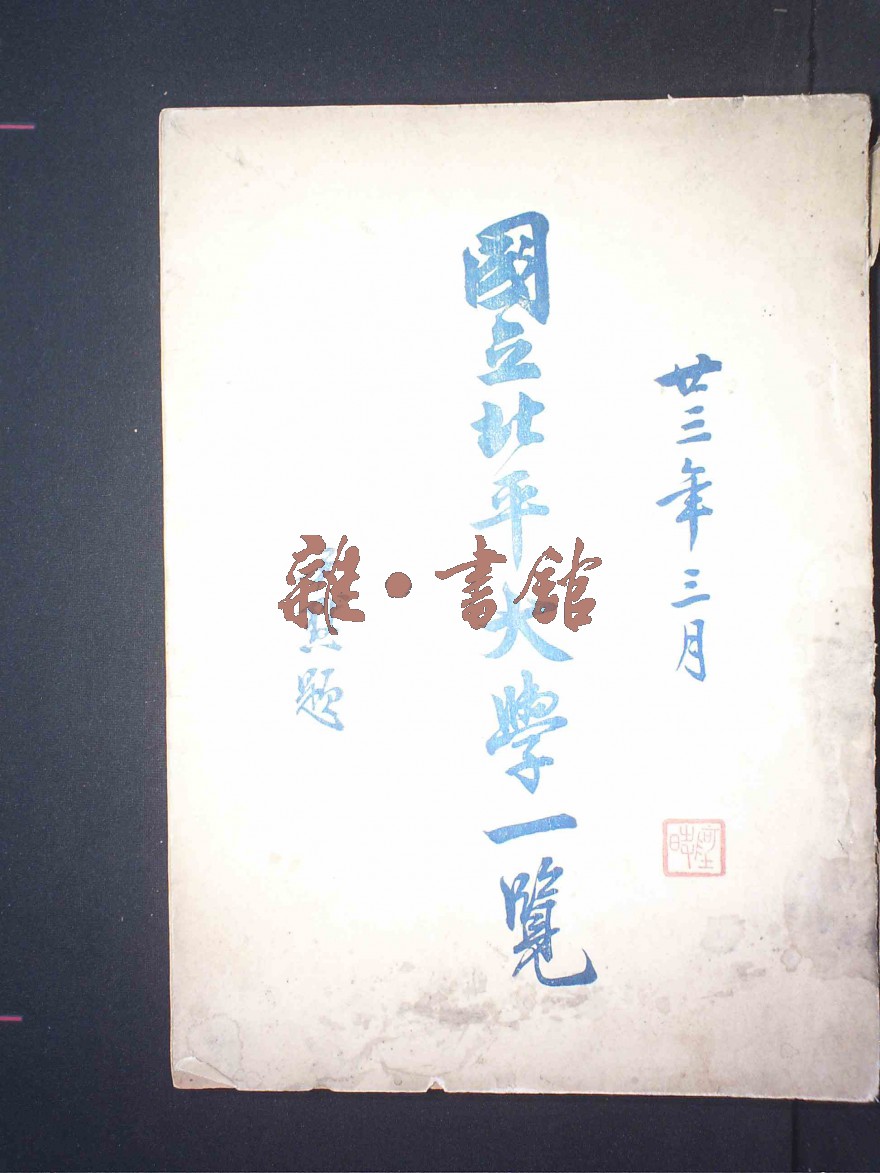 廿三年三月
國立北平大學一覽
題
雜·書館